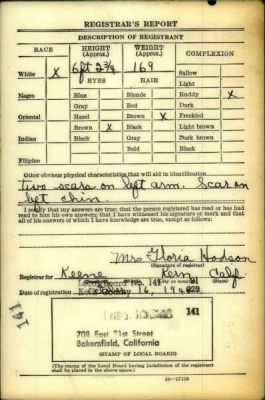 REGISTRAR'S REPORT
DESCRIPTION OF REGISTRANT
RACE HEIGHT (Approx.) WEIGHT (Approx.) COMPLEXION
6ft 2¾ 169
White X EYES HAIR Sallow
Light
Negro Blue Blonde Ruddy X
Gray Red Dark
Oriental Hazel Brown X Freckled
Brown X Black Light brown
Indian Black Gray Dark brown
Bald Black
Filipino
Other obvious physical characteristics that will aid in identification
two scars on left arm. Scar on
left chin.
I certify that my answers are true; that the person registered has read or has had
read to him his own answers; that I have witnessed his signature or mark and that
all of his answers of which I have knowledge are true, except as noted:
Mrs Gloria Hodson
(Signature of registrar)
Registrar for Keene Kern Calif
Local Board No. 141
Date of registration 16, 194
141
141
708 East 21st Street
Bakersfield, California
(STAMP OF LOCAL BOARD)
(The stamp of the Local Board having jurisdiction of the registrant
shall be placed in the above space.)
16—17105